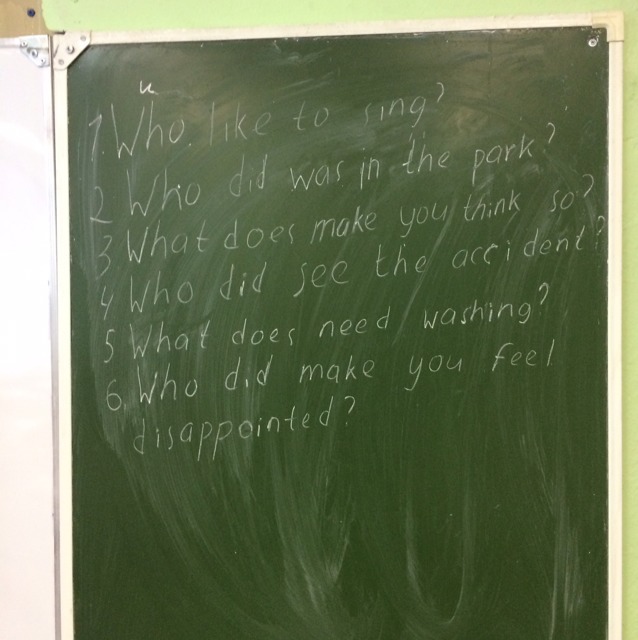 и
1. Who like to sing?
2 Who did was in the park?
3 What does make you think so?
4 Who did see the accident?
5 What does need washing?
6. Who did make you feel
disappointed?